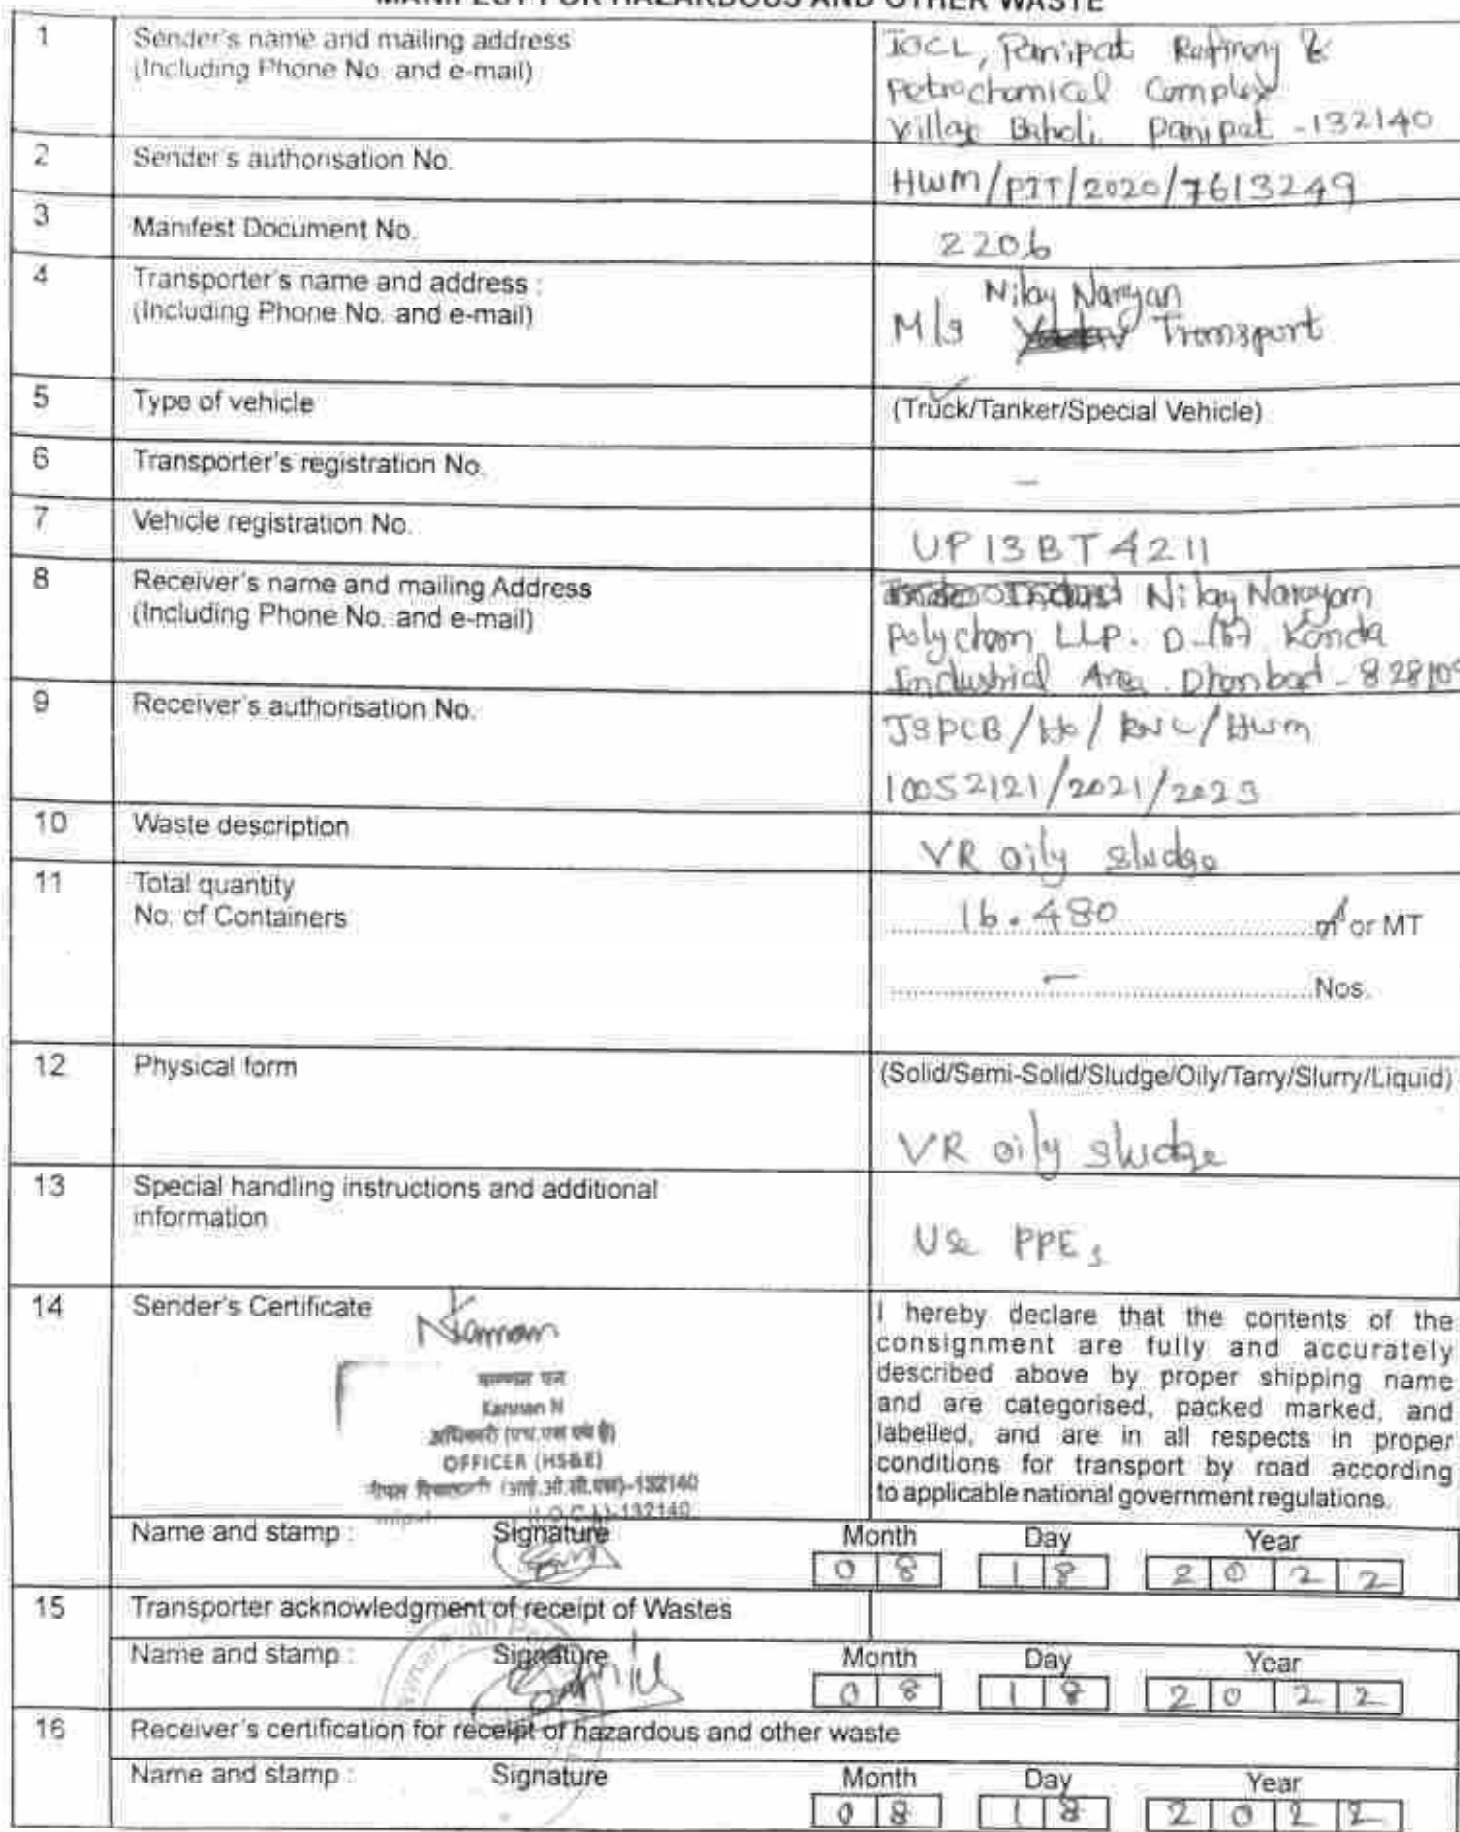 MANIFEST FOR HAZARDOUS AND OTHER WASTE
1 Sender's name and mailing address (Including Phone No. and e-mail)
IOCL, Panipat Refinery &
Petrochemical Complex
Village Baholi, Panipat - 132140
2 Sender's authorisation No. HWM/PIT/2020/7613249
3 Manifest Document No. 2206
4 Transporter's name and address :
(Including Phone No. and e-mail)
Nilay Naryan
M/s Transport
5 Type of vehicle (Truck/Tanker/Special Vehicle)
6 Transporter's registration No. -
7 Vehicle registration No. UP13BT4211
8 Receiver's name and mailing Address
(Including Phone No. and e-mail)
Nilay Narayan
Polychem LLP. Kanda
Industrial Area. Dhanbad - 828109
9 Receiver's authorisation No. JSPCB/Ho/RNC/HWM
10052121/2021/2023
10 Waste description VR oily sludge
11 Total quantity 16.480 or MT
No. of Containers - Nos.
12 Physical form (Solid/Semi-Solid/Sludge/Oily/Tarry/Slurry/Liquid)
VR oily sludge
13 Special handling instructions and additional
information
Use PPEs
14 Sender's Certificate
Kannan N
OFFICER (HS&E)
I hereby declare that the contents of the
consignment are fully and accurately
described above by proper shipping name
and are categorised, packed marked, and
labelled, and are in all respects in proper
conditions for transport by road according
to applicable national government regulations.
Name and stamp : Signature Month Day Year
08 18 2022
15 Transporter acknowledgment of receipt of Wastes
Name and stamp : Signature Month Day Year
08 18 2022
16 Receiver's certification for receipt of hazardous and other waste
Name and stamp : Signature Month Day Year
08 18 2022